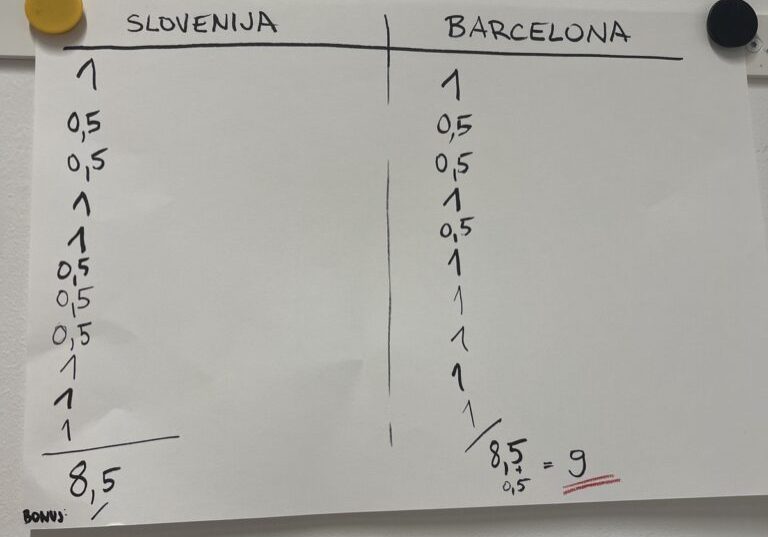 SLOVENIJA BARCELONA
1 1
0,5 0,5
0,5 0,5
1 1
1 0,5
0,5 1
0,5 1
0,5 1
1 1
1 1
1
8,5 8,5 + 0,5 = 9
BONUS: